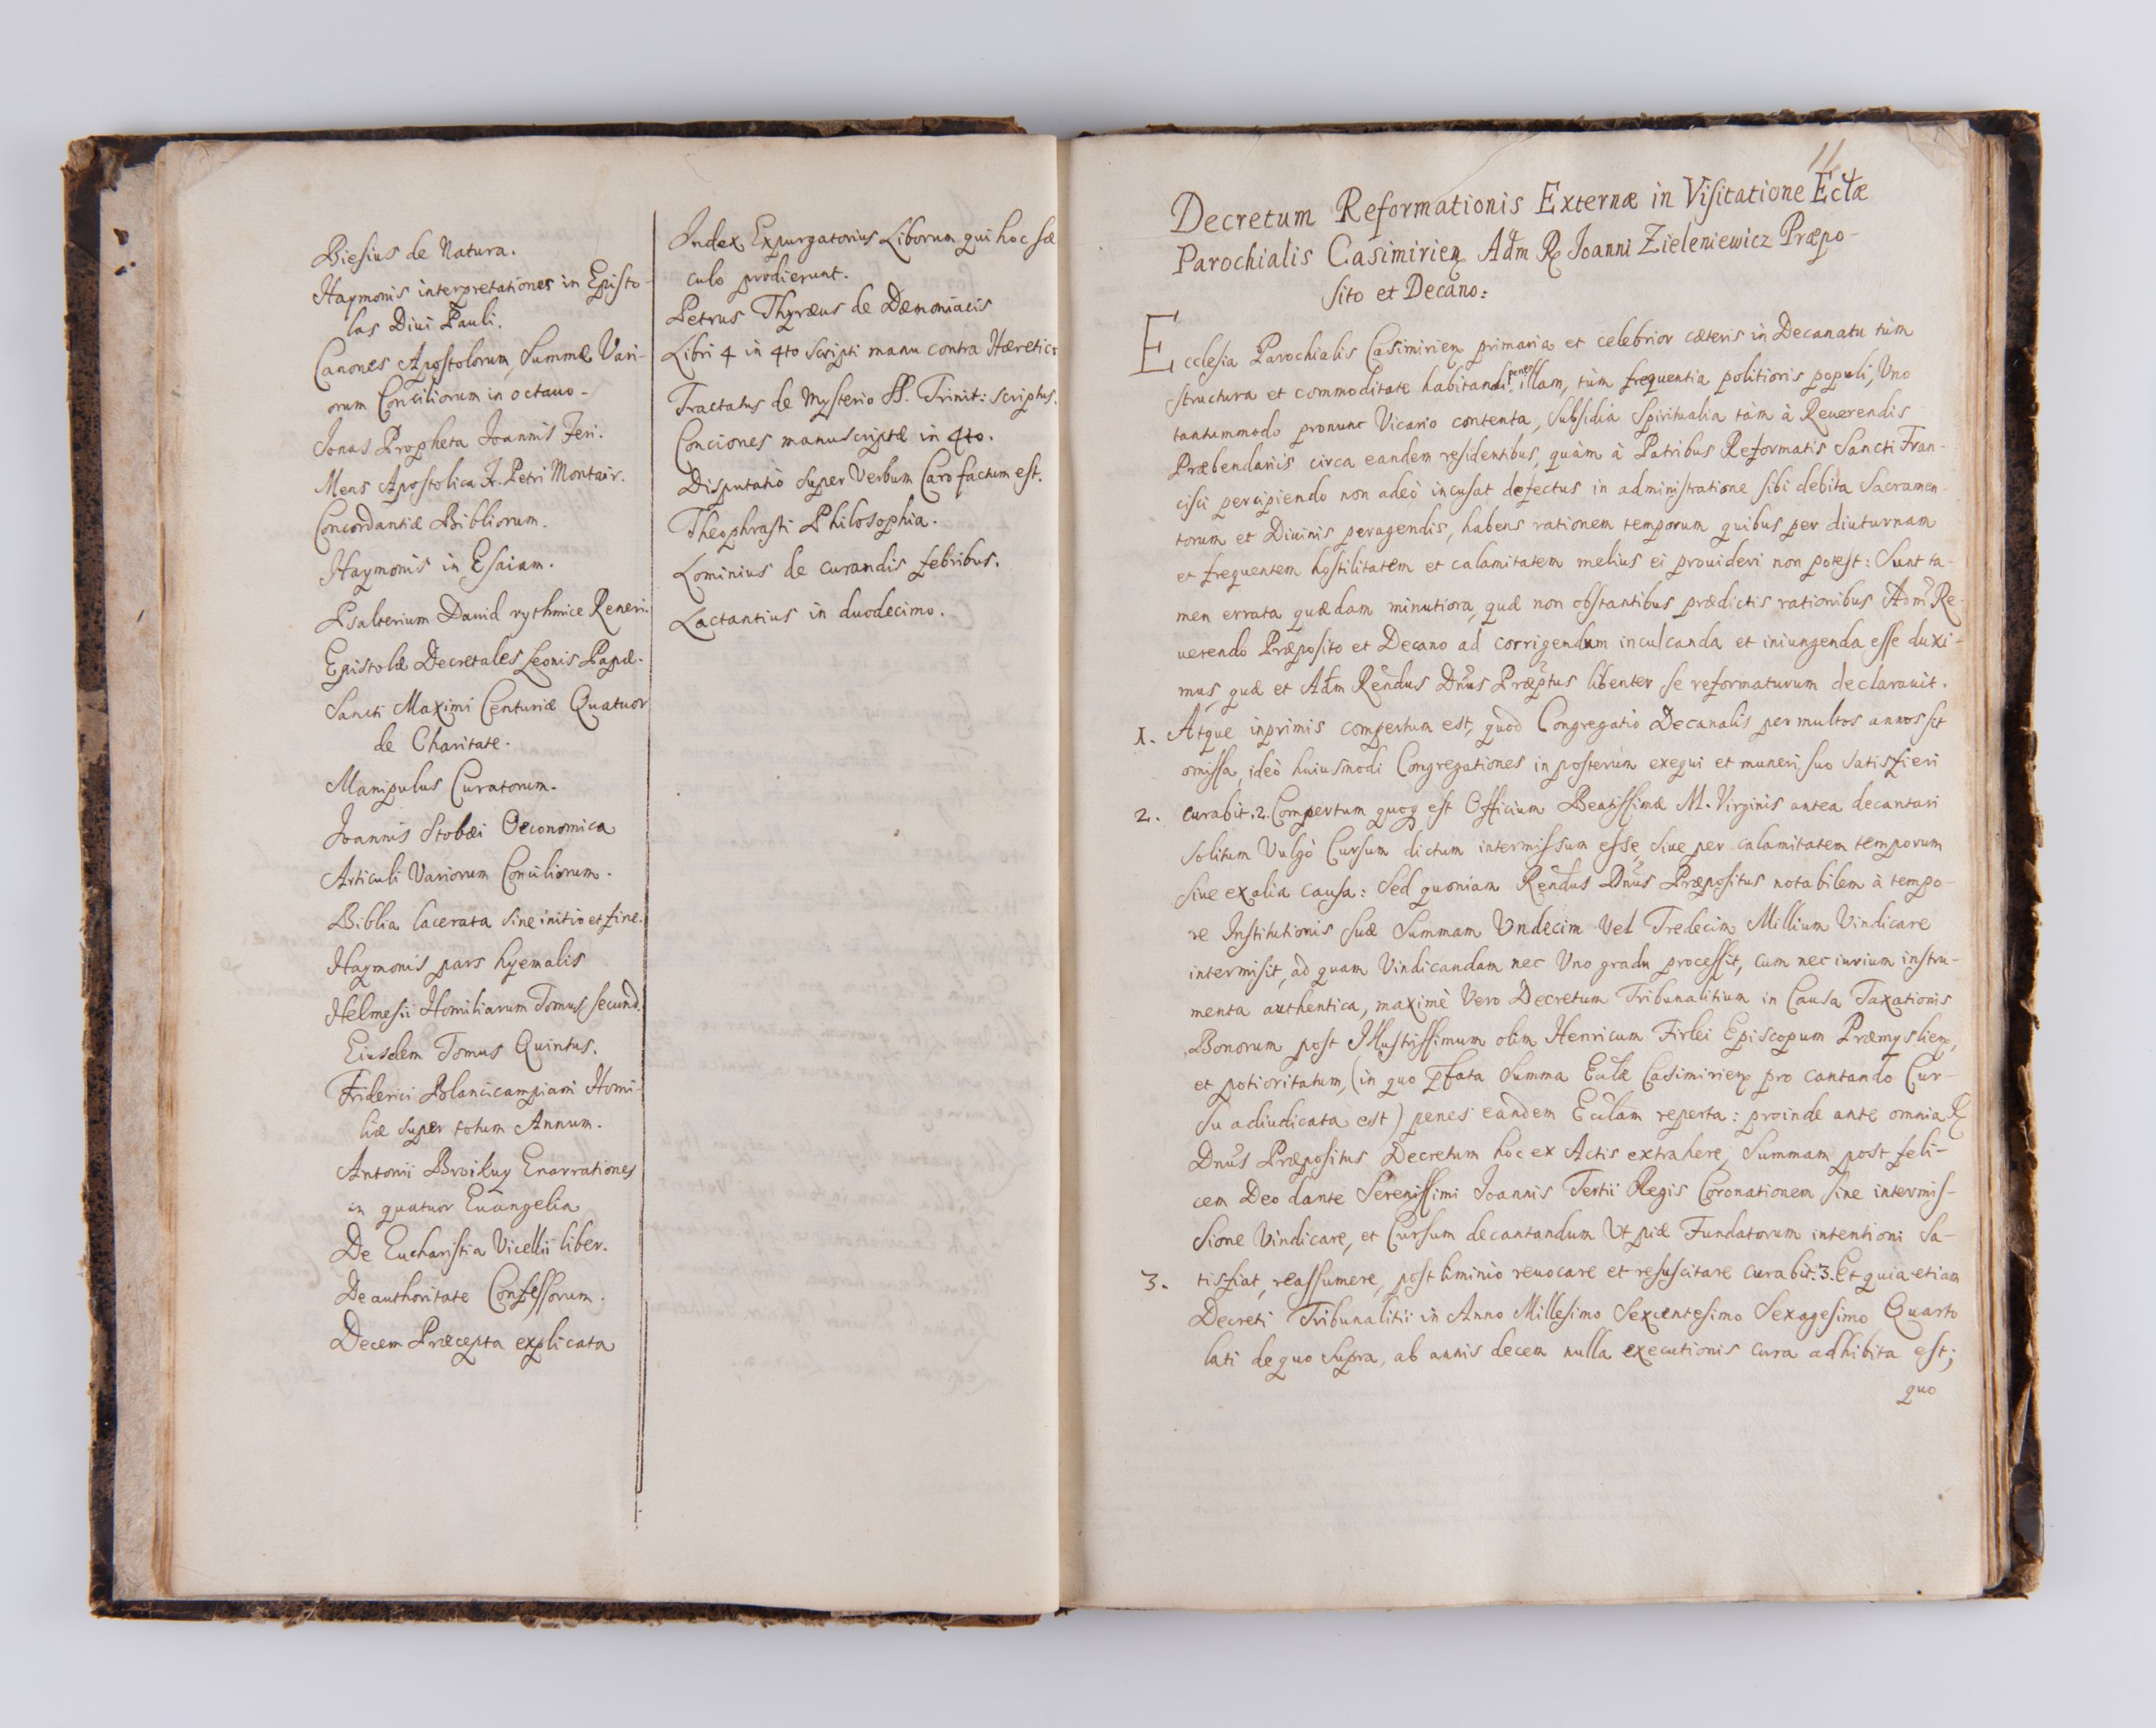 Biesius de Natura.
Haymonis interpretationes in Episto-
las Diui Pauli.
Canones Apostolorum, Summæ Vari-
orum Conciliorum in octauo-
Jonas Propheta Joannis Feri.
Mens Apostolica Fr. Petri
Concordantiæ Bibliorum.
Haymonis in Esaiam.
Psalterium Dauid rythmice Reneri.
Epistolæ Decretales Leonis Papæ.
Sancti Maximi Centuriæ Quatuor
de Charitate.
Manipulus Curatorum.
Joannis Stobæi Oeconomica
Articuli Variorum Conciliorum.
Biblia lacerata sine initio et fine.
Haymonis pars hyemalis
Helmesii Homiliarum Tomus secund.
Eiusdem Tomus Quintus.
Friderici Blancicampiani Homi-
liæ super totum Annum.
Antonii Broikuy Enarrationes
in quatuor Euangelia
De Eucharistia Vicellii liber.
De authoritate Confessorum.
Decem Præcepta explicata
Index Expurgatorius Liborum qui hoc sæ
culo prodierunt.
Petrus Thyræus de Dæmoniacis
Libri 4 in 4to scripti manu contra Hæretic
Tractatus de Mysterio SS. Trinit: scriptus.
Conciones manuscriptæ in 4to.
Disputatio super Verbum Caro factum est.
Theophrasti Philosophia.
Lominius de curandis febribus.
Lactantius in duodecimo.
Decretum Reformationis Externæ in Visitatione Ectæ
Parochialis Casimirien Adm R Joanni Zieleniewicz Præpo-
sito et Decano:
Ecclesia Parochialis Casimirien primaria et celebrior cæteris in Decanatu tùm
structura et commoditate habitandi penes illam, tùm frequentia politioris populi, Uno
tantummodo pronunc Vicario contenta, subsidia Spiritualia tàm à Reuerendis
Præbendariis circa eandem residentibus, quàm à Patribus Reformatis Sancti Fran-
cisci percipiendo non adeò incusat defectus in administratione sibi debita Sacramen-
torum et Diuinis peragendis, habens rationem temporum quibus per diuturnam
et frequentem hostilitatem et calamitatem melius ei prouideri non potest: Sunt ta-
men errata quædam minutiora, quæ non obstantibus prædictis rationibus Adm Re-
uerendo Præposito et Decano ad corrigendum inculcanda et iniungenda esse duxi-
mus, quæ et Adm Rendus Dnus Præptus libenter se reformaturum declarauit.
1. Atque inprimis compertum est, quòd Congregatio Decanalis per multos annos sit
omissa, ideò huiusmodi Congregationes in posterùm exequi et muneri suo satisfieri
2. curabit. 2. Compertum quoq est Officium Beatissimæ M. Virginis antea decantari
solitum Vulgò Cursum dictum intermissum esse, siue per calamitatem temporum
siue ex alia causa: Sed quoniam Rendus Dnus Præpositus notabilem à tempo-
re Institutionis suæ Summam Undecim Vel Tredecim Millium Vindicare
intermisit, ad quam Vindicandam nec Uno gradu processit, cum nec iurium instru-
menta authentica, maximè Vero Decretum Tribunalitium in Causa Taxationis
Bonorum post Illustrissimum olim Henricum Firlei Episcopum Præmyslien,
et potioritatum, (in quo pfata Summa Eclæ Casimirien pro cantando Cur-
su adiudicata est) penes eandem Eclam reperta: proinde ante omnia R
Dnus Præpositus Decretum hoc ex Actis extrahere, Summam post feli-
cem Deo dante Serenissimi Joannis Tertii Regis Coronationem sine intermis-
sione Vindicare, et Cursum decantandum Ut piæ Fundatorum intentioni sa-
3. tisfiat, reassumere, post liminio reuocare et resuscitare curabit. 3. Et quia etiam
Decreti Tribunalitii in Anno Millesimo Sexcentesimo Sexagesimo Quarto
lati de quo supra, ab annis decem nulla executionis cura adhibita est;
quo